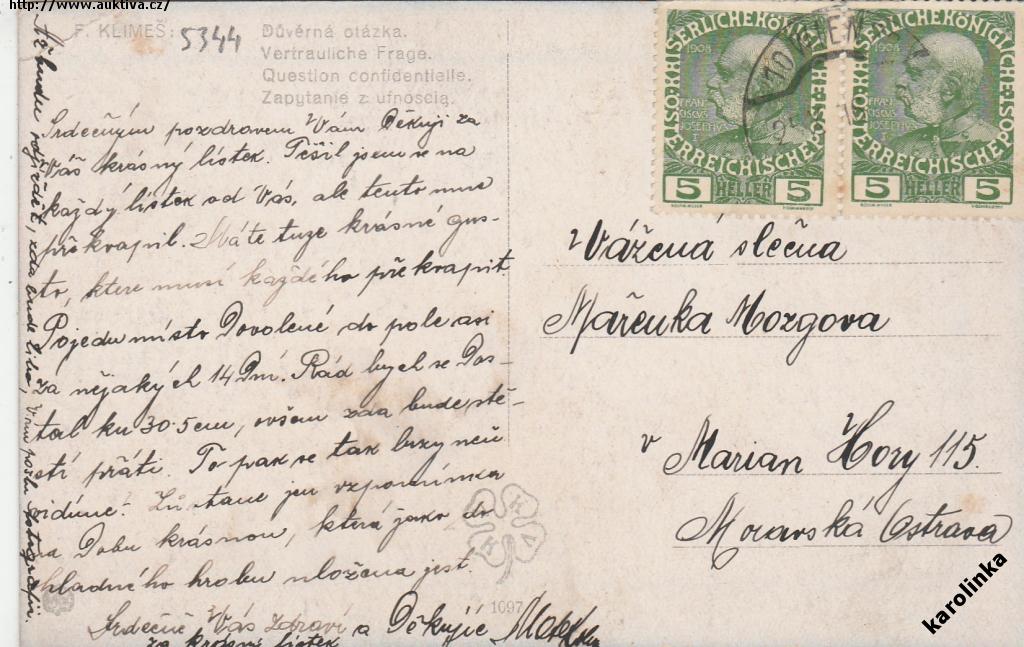 http://www.auktiva.cz/
F. KLIMEŠ:
5344
Důvěrná otázka.
Vertrauliche Frage.
Question confidentielle.
Zapytanie z ufnością.
Srdečným pozdravem Vám Děkuji za
Váš krásný lístek. Těšil jsem se na
každý lístek od Vás, ale tento mne
překvapil. Máte tuze krásné gus-
to, ktere musí každého překvapit.
Pojedu místo Dovolené do pole asi
za nějakých 14 Dní. Rád bych se Dos-
tal ku 30.5cm, ovšem zda bude stě-
stí přáti. To pak se tak brzy neu
vidíme! Zůstane jen vzpomínka
na Dobu krásnou, která jako do
hladného hrobu uložena jest.
Srdečně Vás zdraví a Děkujíc
za krásný lístek
Až budu odjíždět, zda bude Vám pošlu fotografii.
1097
SERLICHE KÖNIGLICHE ÖSTERREICHISCHE POST
1908
FRANCISCUS JOSEPHUS I
5 HELLER 5
SERLICHE KÖNIGLICHE ÖSTERREICHISCHE POST
1908
FRANCISCUS JOSEPHUS I
5 HELLER 5
WIEN
Vážena slečna
Mařenka Mozgova
v Marian Hory 115.
Moravská Ostrava
karolinka